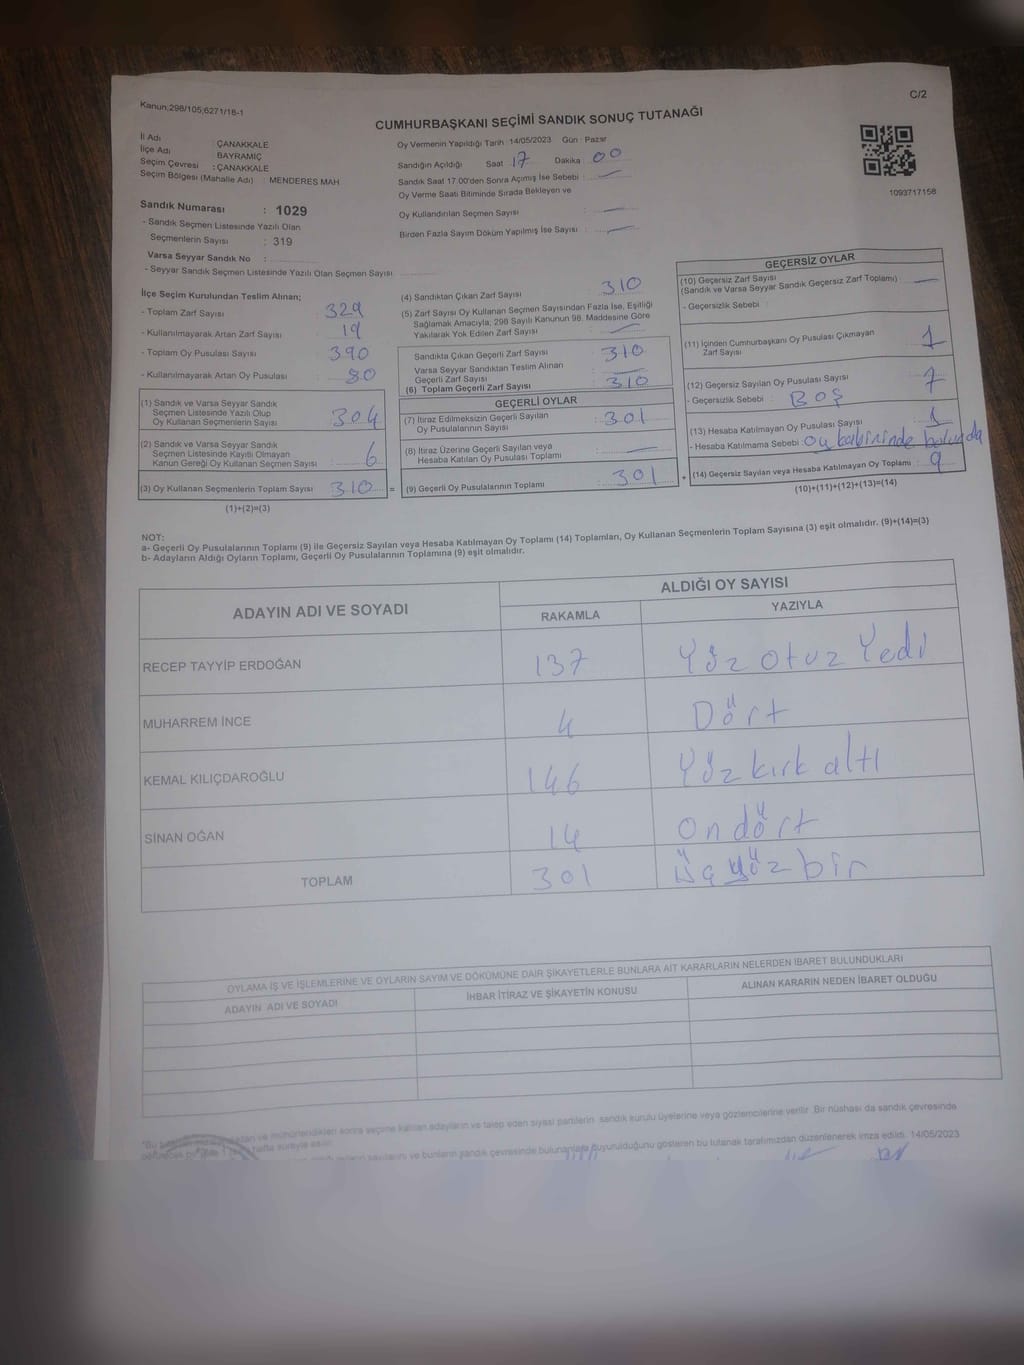 Kanun;298/105;6271/18-1
C/2
CUMHURBAŞKANI SEÇİMİ SANDIK SONUÇ TUTANAĞI
İl Adı : ÇANAKKALE
İlçe Adı BAYRAMİÇ
Seçim Çevresi : ÇANAKKALE
Seçim Bölgesi (Mahalle Adı) : MENDERES MAH
Sandık Numarası : 1029
- Sandık Seçmen Listesinde Yazılı Olan
Seçmenlerin Sayısı : 319
Varsa Seyyar Sandık No :
- Seyyar Sandık Seçmen Listesinde Yazılı Olan Seçmen Sayısı
Oy Vermenin Yapıldığı Tarih :14/05/2023 Gün : Pazar
Sandığın Açıldığı Saat 17 Dakika : 00
Sandık Saat 17.00'den Sonra Açımış İse Sebebi : —
Oy Verme Saati Bitiminde Sırada Bekleyen ve
Oy Kullandırılan Seçmen Sayısı : —
Birden Fazla Sayım Döküm Yapılmış İse Sayısı : —
1093717158
İlçe Seçim Kurulundan Teslim Alınan;
- Toplam Zarf Sayısı : 329
- Kullanılmayarak Artan Zarf Sayısı : 19
- Toplam Oy Pusulası Sayısı : 390
- Kullanılmayarak Artan Oy Pusulası : 80
(1) Sandık ve Varsa Seyyar Sandık
Seçmen Listesinde Yazılı Olup
Oy Kullanan Seçmenlerin Sayısı : 304
(2) Sandık ve Varsa Seyyar Sandık
Seçmen Listesinde Kayıtlı Olmayan
Kanun Gereği Oy Kullanan Seçmen Sayısı : 6
(3) Oy Kullanan Seçmenlerin Toplam Sayısı : 310 =
(1)+(2)=(3)
(4) Sandıktan Çıkan Zarf Sayısı : 310
(5) Zarf Sayısı Oy Kullanan Seçmen Sayısından Fazla İse, Eşitliği
Sağlamak Amacıyla, 298 Sayılı Kanunun 98. Maddesine Göre
Yakılarak Yok Edilen Zarf Sayısı : —
Sandıkta Çıkan Geçerli Zarf Sayısı : 310
Varsa Seyyar Sandıktan Teslim Alınan
Geçerli Zarf Sayısı : —
(6) Toplam Geçerli Zarf Sayısı : 310
GEÇERLİ OYLAR
(7) İtiraz Edilmeksizin Geçerli Sayılan
Oy Pusulalarının Sayısı : 301
(8) İtiraz Üzerine Geçerli Sayılan veya
Hesaba Katılan Oy Pusulası Toplamı : —
(9) Geçerli Oy Pusulalarının Toplamı : 301 +
GEÇERSİZ OYLAR
(10) Geçersiz Zarf Sayısı
(Sandık ve Varsa Seyyar Sandık Geçersiz Zarf Toplamı) : —
- Geçersizlik Sebebi :
(11) İçinden Cumhurbaşkanı Oy Pusulası Çıkmayan
Zarf Sayısı 1
(12) Geçersiz Sayılan Oy Pusulası Sayısı : 7
- Geçersizlik Sebebi : BOŞ
(13) Hesaba Katılmayan Oy Pusulası Sayısı : 1
- Hesaba Katılmama Sebebi : Oy kabininde bulundu
(14) Geçersiz Sayılan veya Hesaba Katılmayan Oy Toplamı : 9
(10)+(11)+(12)+(13)=(14)
NOT:
a- Geçerli Oy Pusulalarının Toplamı (9) ile Geçersiz Sayılan veya Hesaba Katılmayan Oy Toplamı (14) Toplamları, Oy Kullanan Seçmenlerin Toplam Sayısına (3) eşit olmalıdır. (9)+(14)=(3)
b- Adayların Aldığı Oyların Toplamı, Geçerli Oy Pusulalarının Toplamına (9) eşit olmalıdır.
ADAYIN ADI VE SOYADI
ALDIĞI OY SAYISI
RAKAMLA YAZIYLA
RECEP TAYYİP ERDOĞAN 137 Yüz otuz Yedi
MUHARREM İNCE 4 Dört
KEMAL KILIÇDAROĞLU 146 Yüz kırk altı
SİNAN OĞAN 14 On dört
TOPLAM 301 Üç yüz bir
OYLAMA İŞ VE İŞLEMLERİNE VE OYLARIN SAYIM VE DÖKÜMÜNE DAİR ŞİKAYETLERLE BUNLARA AİT KARARLARIN NELERDEN İBARET BULUNDUKLARI
ADAYIN ADI VE SOYADI İHBAR İTİRAZ VE ŞİKAYETİN KONUSU ALINAN KARARIN NEDEN İBARET OLDUĞU
"Bu ve mühürlendikten sonra seçime katılan adayların ve talep eden siyasi partilerin sandık kurulu üyelerine veya gözlemcilerine verilir. Bir nüshası da sandık çevresinde
hafta süreyle asılır.
sayılarını ve bunların sandık çevresinde duyurulduğunu gösteren bu tutanak tarafımızdan düzenlenerek imza edildi. 14/05/2023